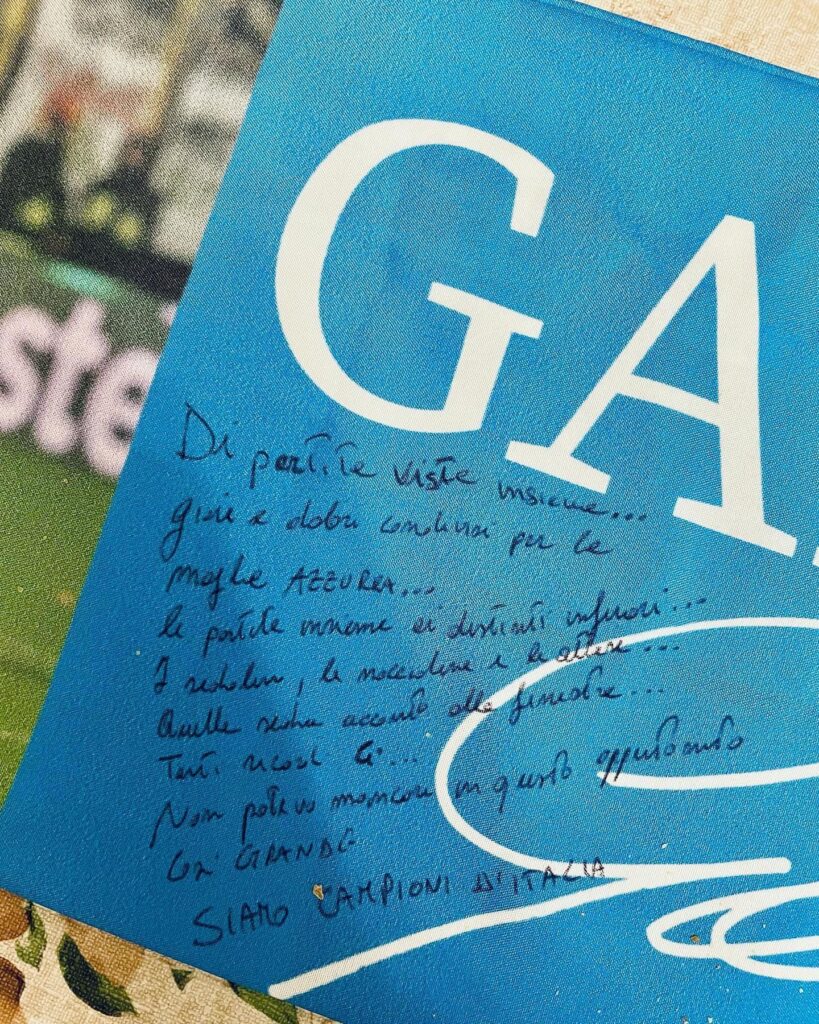 GA
ste
Di partite viste insieme...
gioie e dolori condivisi per la
maglia AZZURRA...
le partite insieme ai distinti inferiori...
I sedolini, le noccioline e le attese...
Quella sedia accanto alla finestra...
Tanti ricordi G...
Non potevo mancare in questo appuntamento
COSI' GRANDE
SIAMO CAMPIONI D'ITALIA